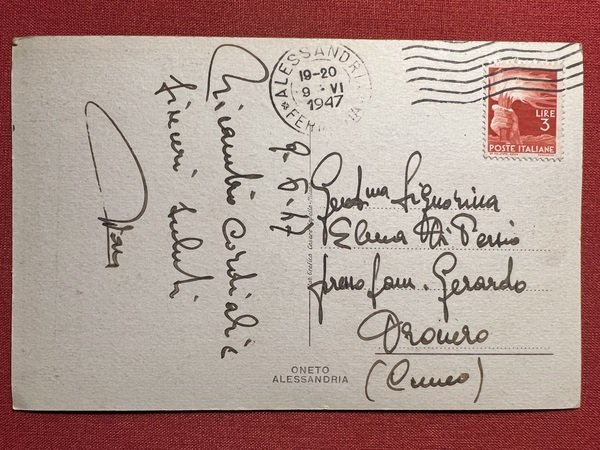 Ricambio cordiali e
sinceri saluti
9.6.47
ALESSANDRIA
19-20
9 · VI
1947
FERROVIA
LIRE
3
POSTE ITALIANE
Gent.ma Signorina
Elena Di
presso fam. Gerardo
Dronero
(Cuneo)
ONETO
ALESSANDRIA